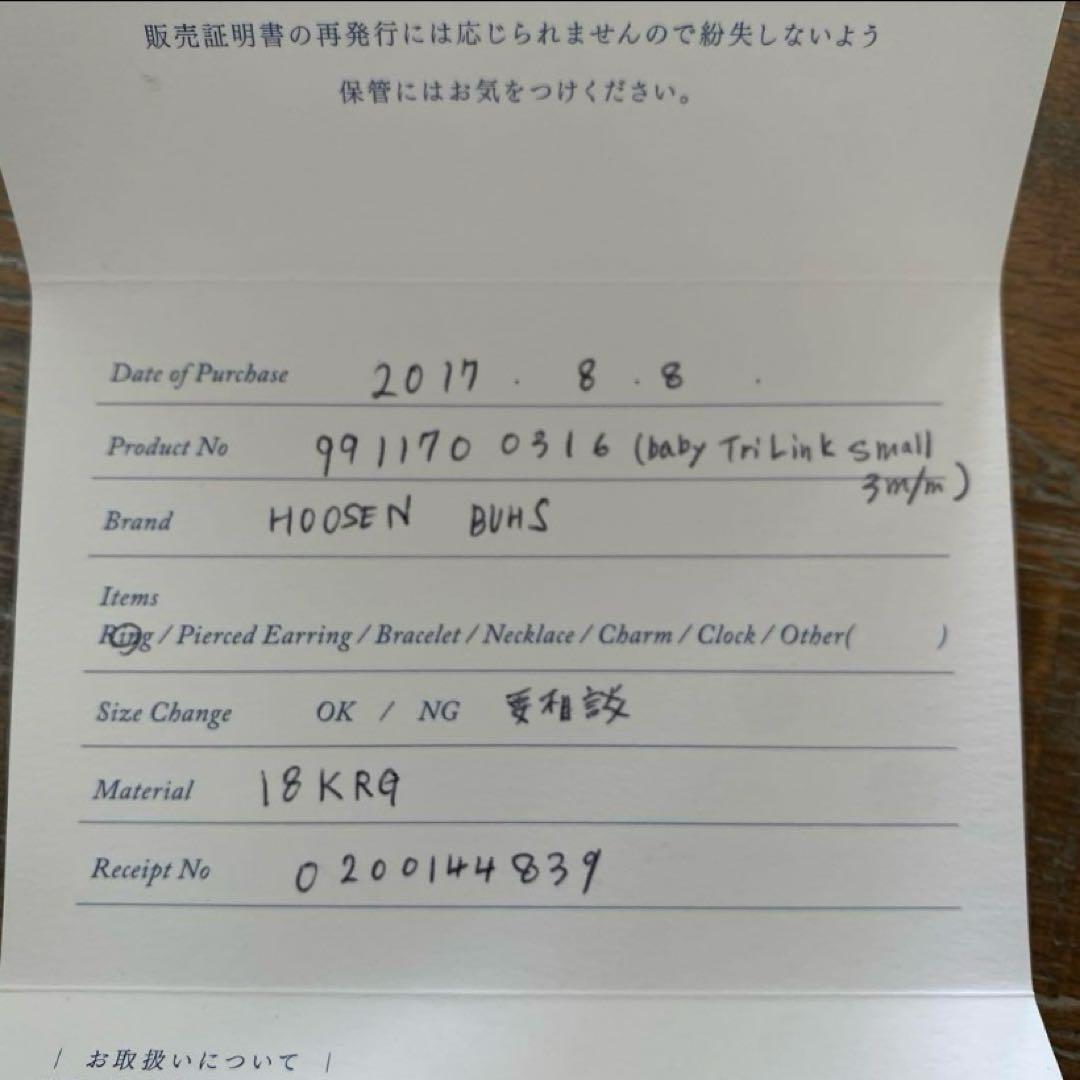 販売証明書の再発行には応じられませんので紛失しないよう
保管にはお気をつけください。
Date of Purchase 2017 . 8 . 8 .
Product No 991170 0316 (baby Tri Link small
3m/m)
Brand HOOSEN BUHS
Items
Ring / Pierced Earring / Bracelet / Necklace / Charm / Clock / Other( )
Size Change OK / NG 要相談
Material 18KRG
Receipt No 0200144839
| お取扱いについて |